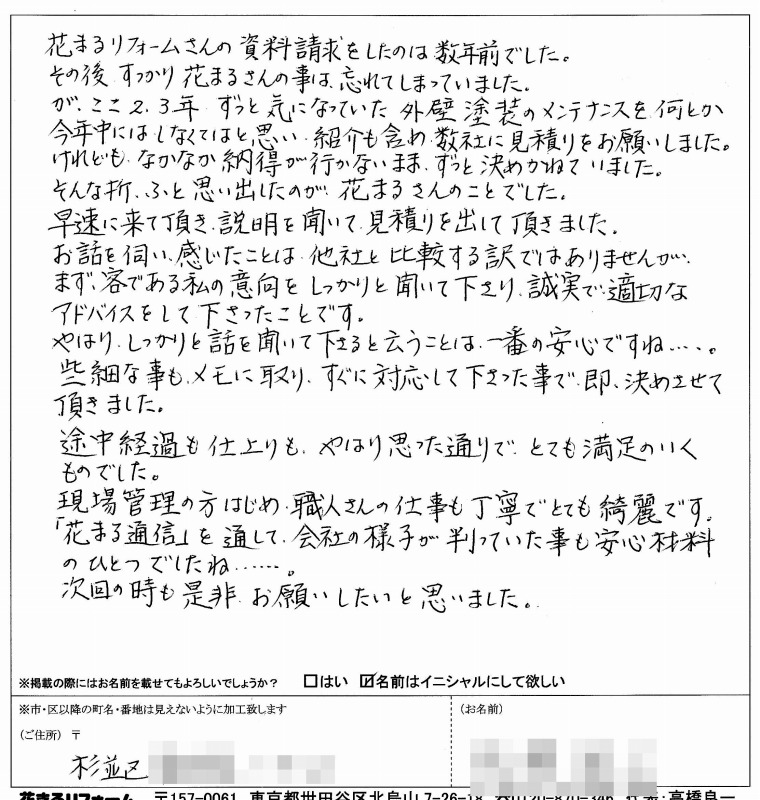 花まるリフォームさんの資料請求をしたのは数年前でした。
その後、すっかり花まるさんの事は、忘れてしまっていました。
が、ここ2、3年、ずっと気になっていた外壁塗装のメンテナンスを、何とか
今年中にはしなくてはと思い、紹介も含め、数社に見積りをお願いしました。
けれども、なかなか納得が行かないまま、ずっと決めかねていました。
そんな折、ふと思い出したのが、花まるさんのことでした。
早速に来て頂き、説明を聞いて、見積りを出して頂きました。
お話を伺い、感じたことは、他社と比較する訳ではありませんが、
まず、客である私の意向をしっかりと聞いて下さり、誠実で、適切な
アドバイスをして下さったことです。
やはり、しっかりと話を聞いて下さると云うことは、一番の安心ですね‥‥。
些細な事も、メモに取り、すぐに対応して下さった事で、即、決めさせて
頂きました。
途中経過も仕上りも、やはり思った通りで、とても満足のいく
ものでした。
現場管理の方はじめ、職人さんの仕事も丁寧でとても綺麗です。
「花まる通信」を通して、会社の様子が判っていた事も安心材料
のひとつでしたね‥‥‥。
次回の時も是非、お願いしたいと思いました。
※掲載の際にはお名前を載せてもよろしいでしょうか？ □はい ☑名前はイニシャルにして欲しい
※市・区以降の町名・番地は見えないように加工致します
(お名前)
(ご住所) 〒
杉並区
花まるリフォーム 〒157-0061 東京都世田谷区北烏山7-26-18
高橋良一